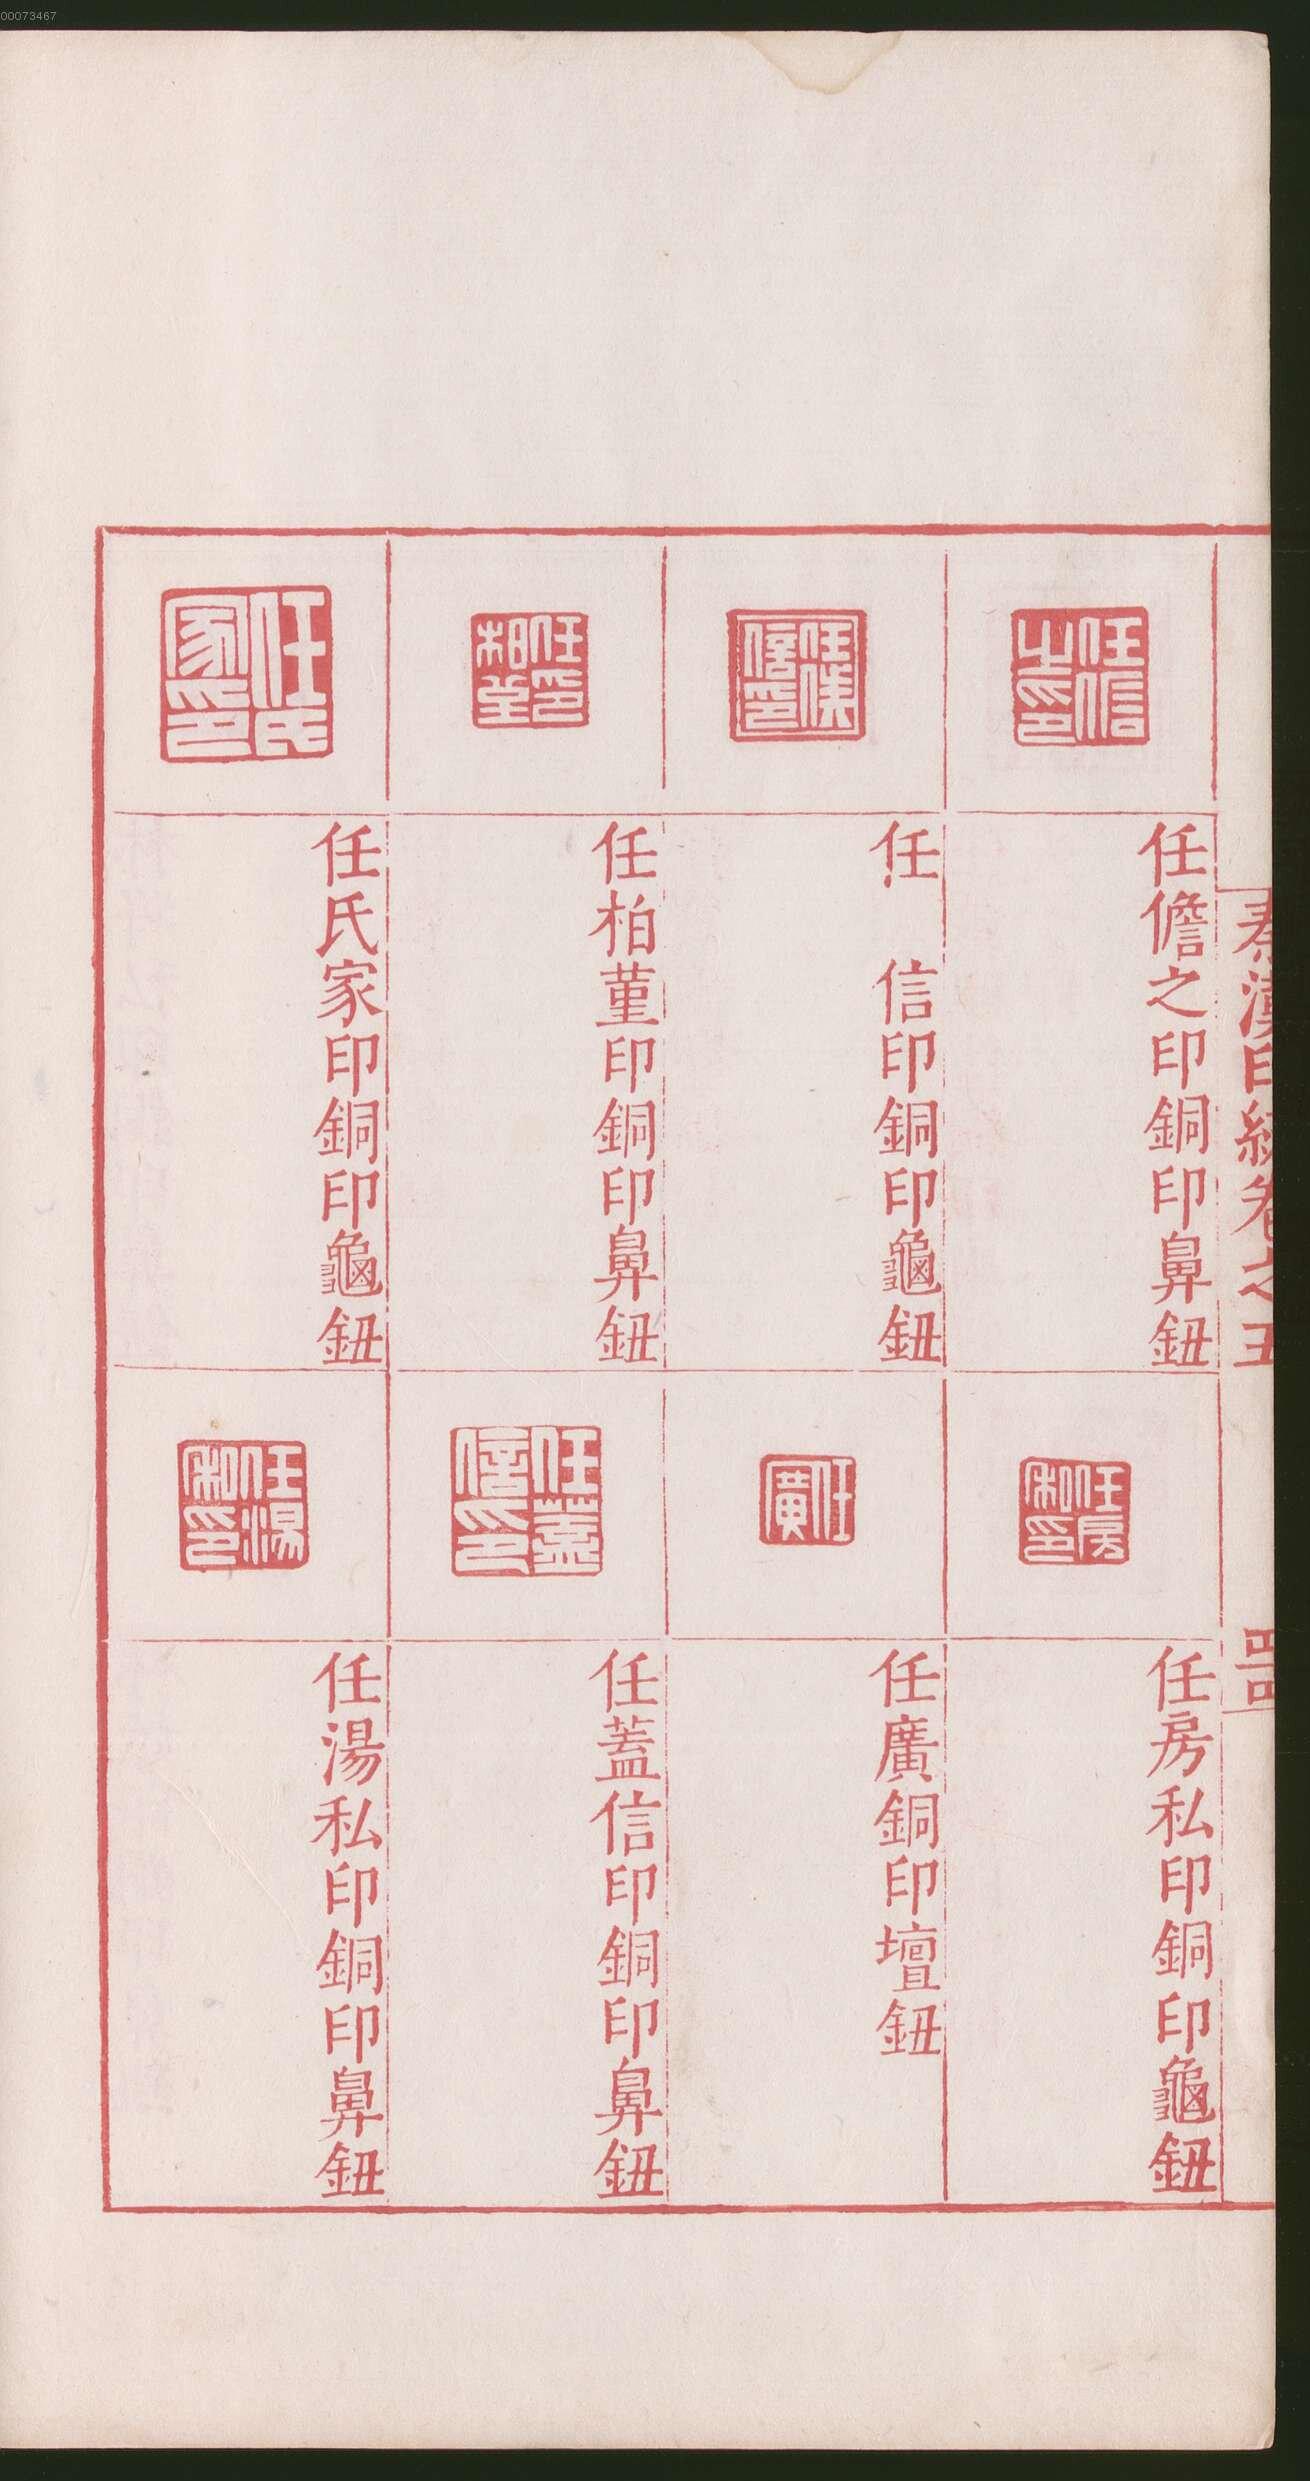 00073467
秦漢印統卷之五
任儋之印銅印鼻鈕
任 信印銅印龜鈕
任柏堇印銅印鼻鈕
任氏家印銅印龜鈕
任房私印銅印龜鈕
任廣銅印壇鈕
任蓋信印銅印鼻鈕
任湯私印銅印鼻鈕